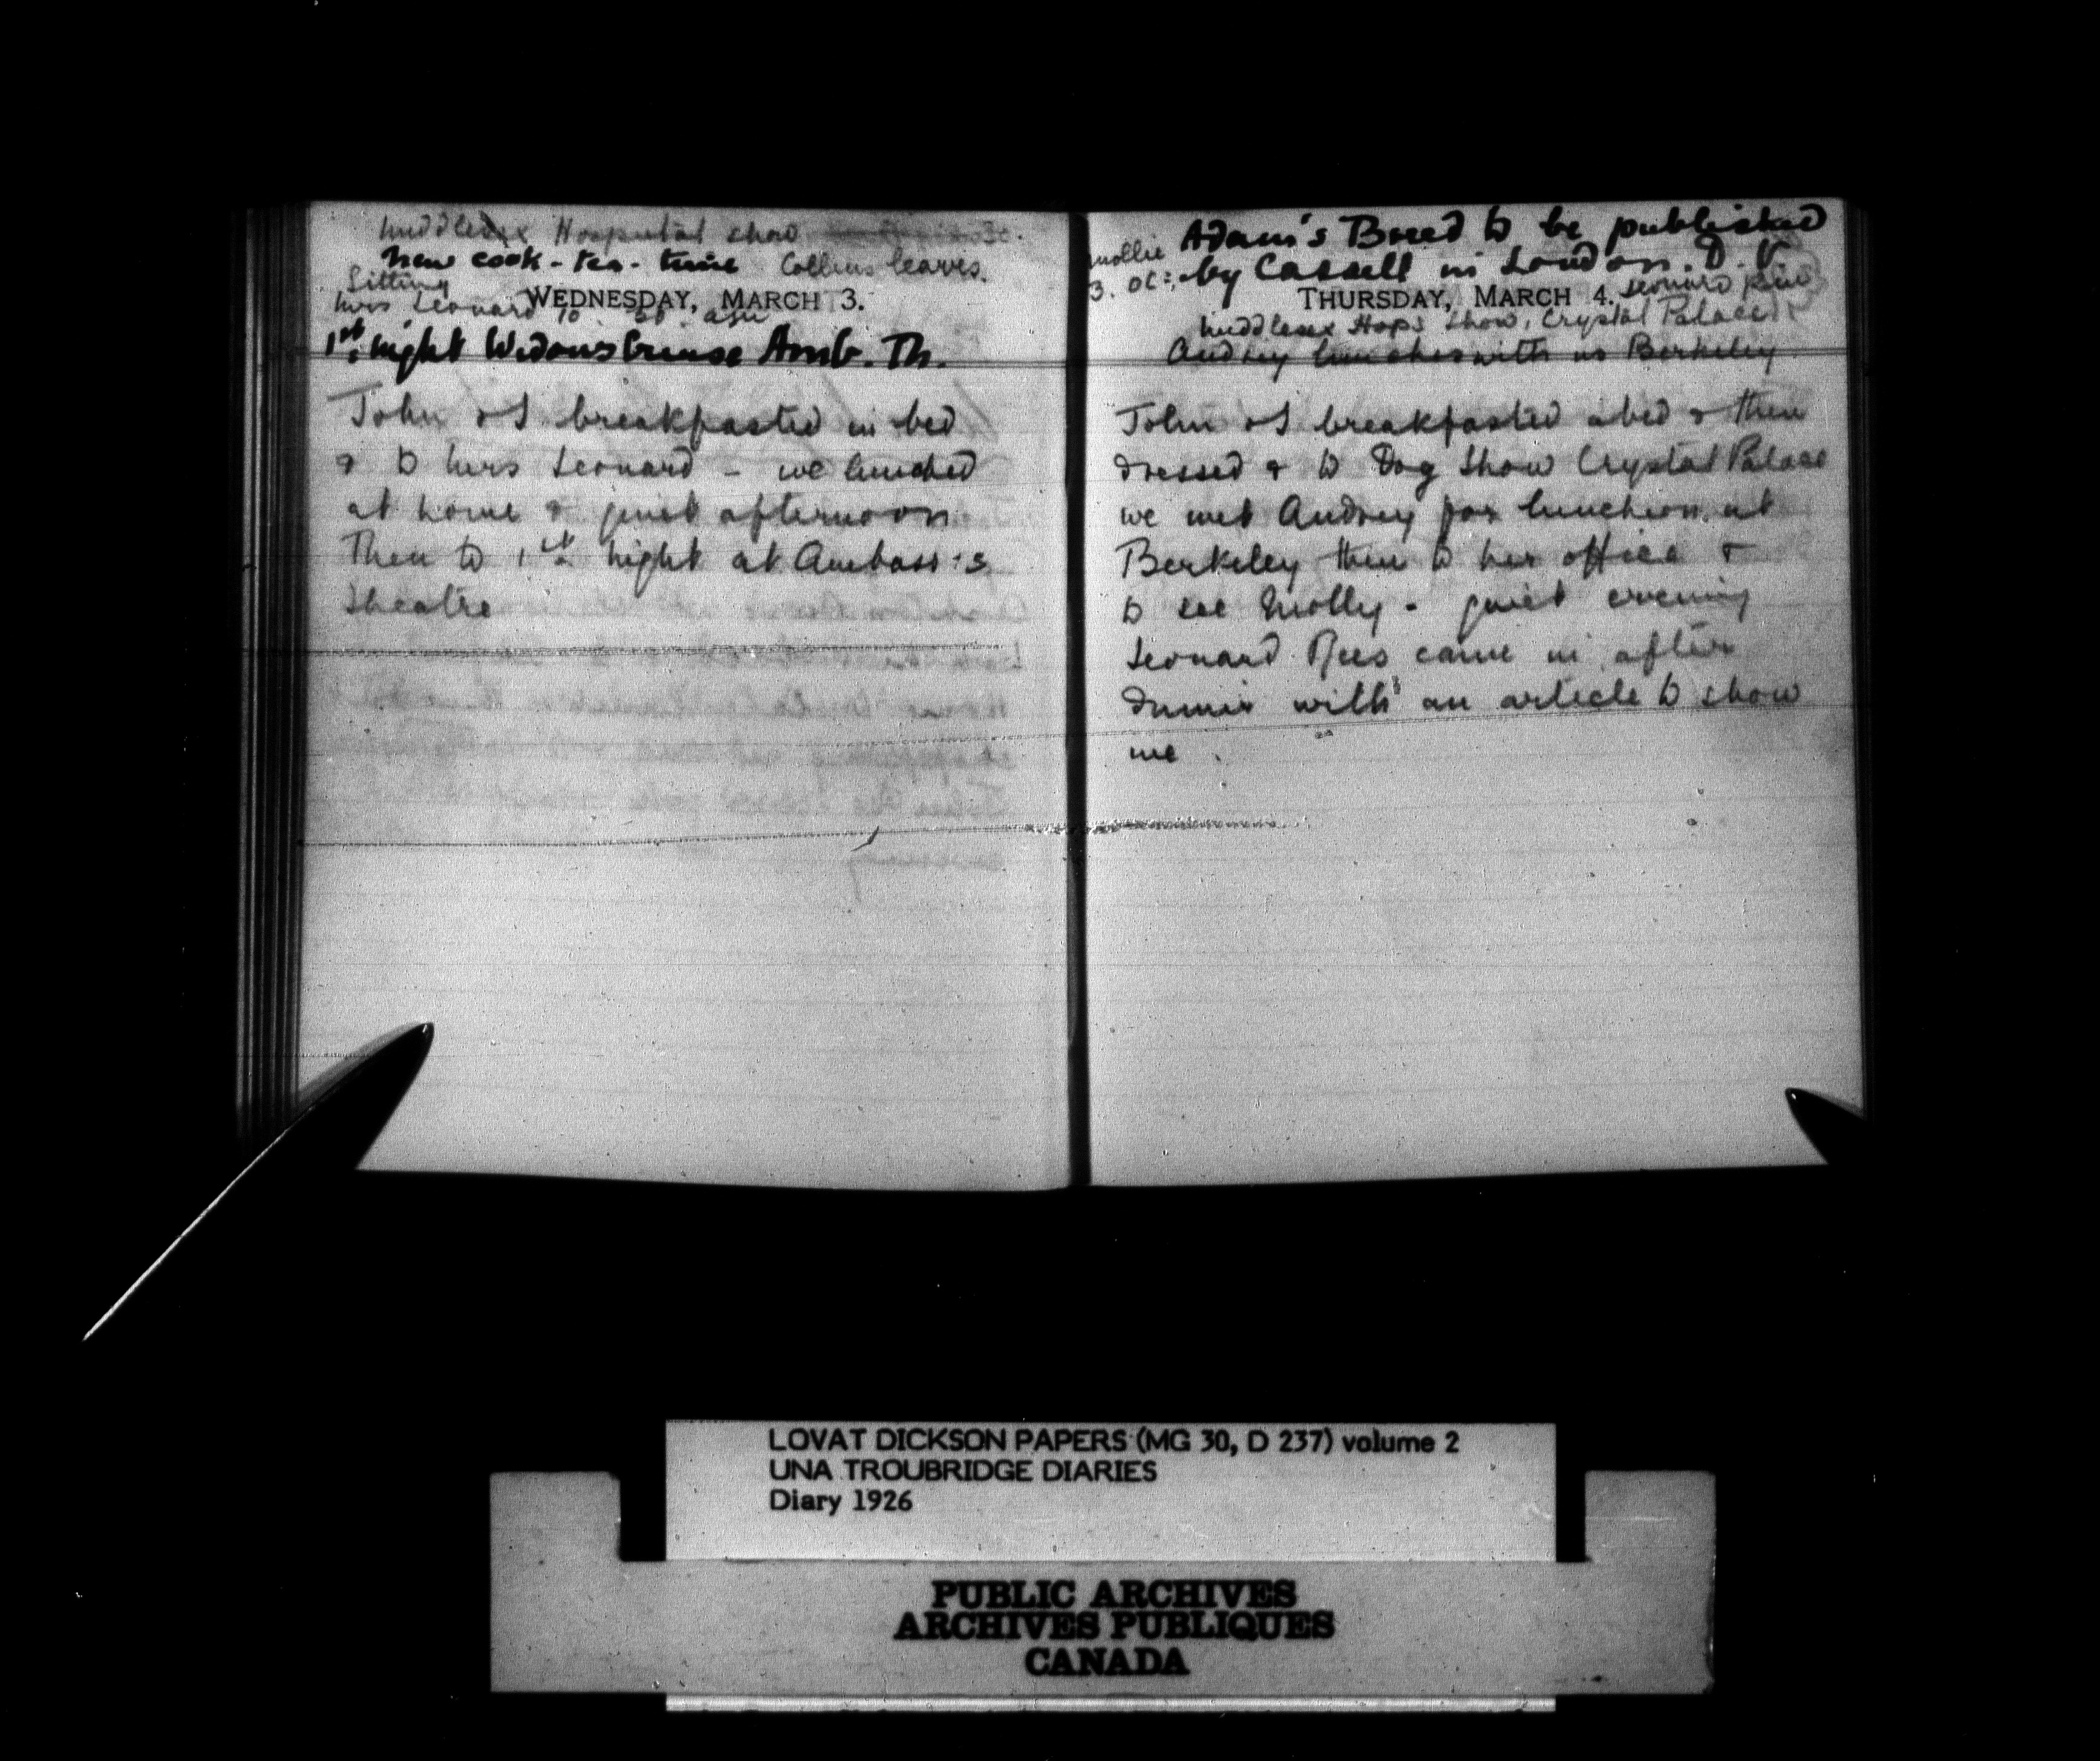 Middlesex Hospital show
New cook - tea - time Collins leaves.
Sitting
Mrs Leonard 10
WEDNESDAY, MARCH 3.
1st night Widow's Cruise Amb. Th.
John & I breakfasted in bed
& to Mrs Leonard - we lunched
at home & quiet afternoon
Then to 1st night at Ambass:s
Theatre
Mollie
3. oc:
Adam's Breed to be published
by Cassell in London. D. V.
THURSDAY, MARCH 4.
Leonard
Middlesex Hosps Show, Crystal Palace
Audrey lunches with us Berkeley
John & I breakfasted abed & then
dressed & to Dog Show Crystal Palace
we met Audrey for luncheon at
Berkeley then to her office &
to see Molly - quiet evening
Leonard Rees came in after
dinner with an article to show
me.
LOVAT DICKSON PAPERS (MG 30, D 237) volume 2
UNA TROUBRIDGE DIARIES
Diary 1926
PUBLIC ARCHIVES
ARCHIVES PUBLIQUES
CANADA